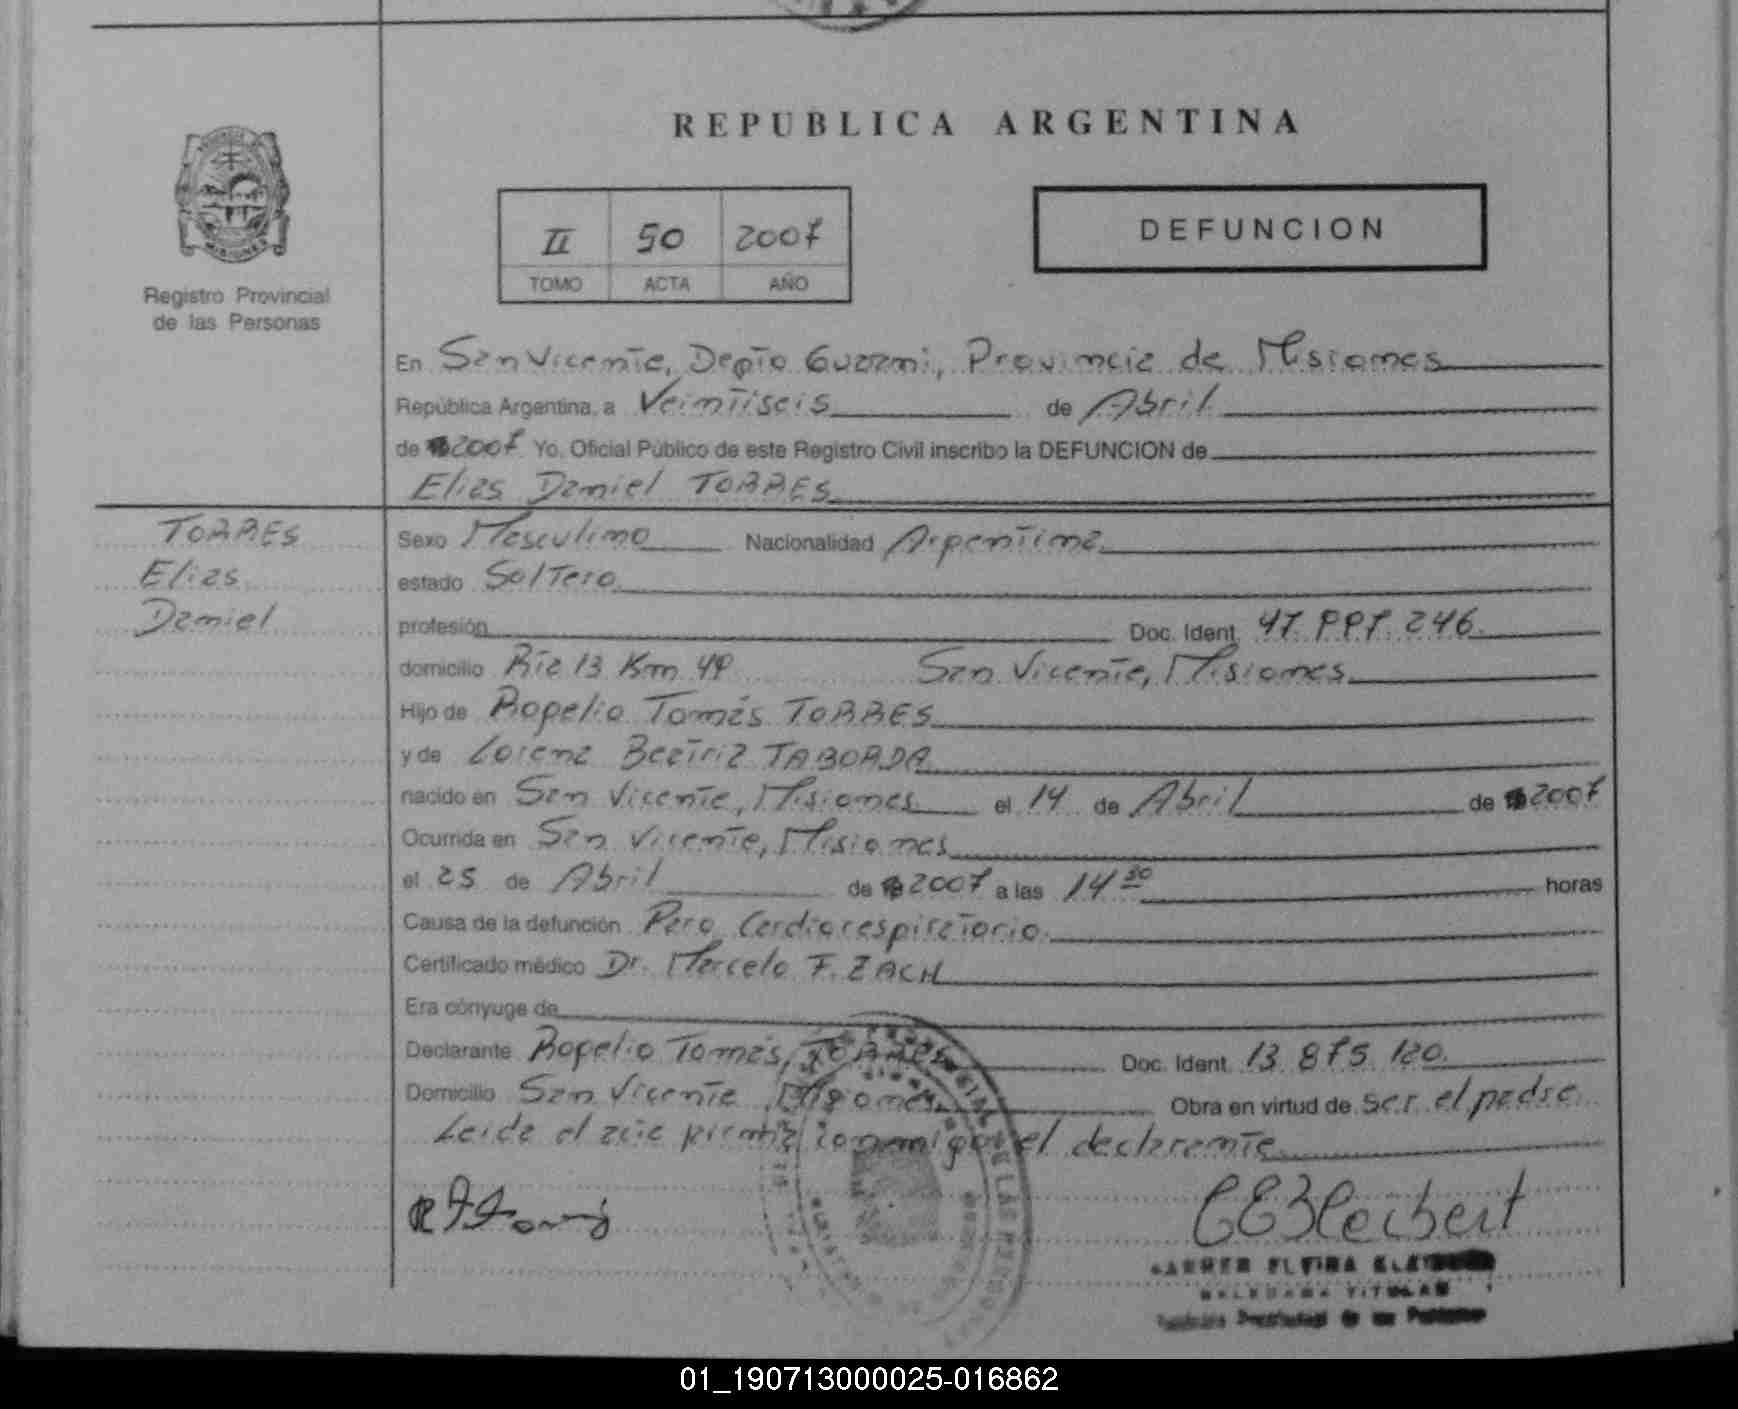 REPUBLICA ARGENTINA
MISIONES
Registro Provincial
de las Personas
II 50 2007
TOMO ACTA AÑO
DEFUNCION
En San Vicente, Depto Guarani, Provincia de Misiones
República Argentina, a Veintiseis de Abril
de 2007 Yo, Oficial Público de este Registro Civil inscribo la DEFUNCION de
Elias Daniel TORRES
TORRES
Elias
Daniel
Sexo Masculino Nacionalidad Argentina
estado Soltero
profesión Doc. Ident. 47.997.246.
domicilio Rta 13 Km 49 San Vicente, Misiones
Hijo de Rogelio Tomás TORRES
y de Lorena Beatriz TABORDA
nacido en San Vicente, Misiones el 14 de Abril de 2007
Ocurrida en San Vicente, Misiones
el 25 de Abril de 2007 a las 14 30 horas
Causa de la defunción Paro Cardiorespiratorio.
Certificado médico Dr. Marcelo F. ZACH
Era cónyuge de
Declarante Rogelio Tomás, TORRES Doc. Ident. 13.875.120.
Domicilio San Vicente, Misiones Obra en virtud de ser el padre
Leida el acta firma conmigo el declarante
01_190713000025-016862